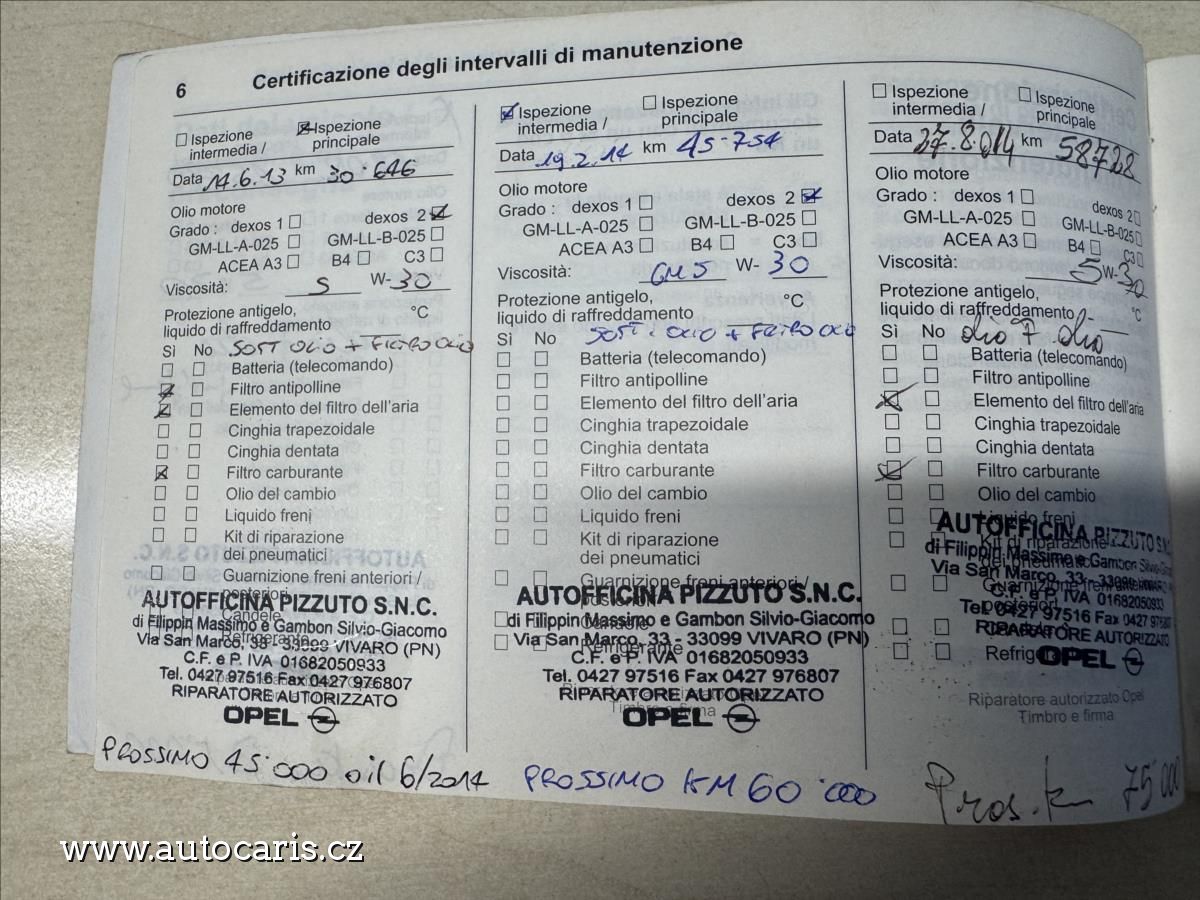 6
Certificazione degli intervalli di manutenzione
Ispezione intermedia /
Ispezione principale
Data 14.6.13 km 30.646
Olio motore
Grado : dexos 1 dexos 2
GM-LL-A-025 GM-LL-B-025
ACEA A3 B4 C3
Viscosità: 5 W- 30
Protezione antigelo, °C
liquido di raffreddamento
Sì No SOST OLIO + FILTRO OLIO
Batteria (telecomando)
Filtro antipolline
Elemento del filtro dell'aria
Cinghia trapezoidale
Cinghia dentata
Filtro carburante
Olio del cambio
Liquido freni
Kit di riparazione
dei pneumatici
Guarnizione freni anteriori /
posteriori
Candele
Refrigerante
AUTOFFICINA PIZZUTO S.N.C.
di Filippin Massimo e Gambon Silvio-Giacomo
Via San Marco, 33 - 33099 VIVARO (PN)
C.F. e P. IVA 01682050933
Tel. 0427 97516 Fax 0427 976807
RIPARATORE AUTORIZZATO
OPEL
PROSSIMO 45.000 oil 6/2014
Ispezione intermedia /
Ispezione principale
Data 19.2.14 km 45.754
Olio motore
Grado : dexos 1 dexos 2
GM-LL-A-025 GM-LL-B-025
ACEA A3 B4 C3
Viscosità: GM5 W- 30
Protezione antigelo, °C
liquido di raffreddamento
Sì No SOST. OLIO + FILTRO OLIO
Batteria (telecomando)
Filtro antipolline
Elemento del filtro dell'aria
Cinghia trapezoidale
Cinghia dentata
Filtro carburante
Olio del cambio
Liquido freni
Kit di riparazione
dei pneumatici
Guarnizione freni anteriori /
posteriori
Candele
Refrigerante
AUTOFFICINA PIZZUTO S.N.C.
di Filippin Massimo e Gambon Silvio-Giacomo
Via San Marco, 33 - 33099 VIVARO (PN)
C.F. e P. IVA 01682050933
Tel. 0427 97516 Fax 0427 976807
RIPARATORE AUTORIZZATO
Timbro e firma
OPEL
PROSSIMO KM 60.000
Ispezione intermedia /
Ispezione principale
Data 27.8.014 km 58728
Olio motore
Grado : dexos 1 dexos 2
GM-LL-A-025 GM-LL-B-025
ACEA A3 B4 C3
Viscosità: 5 W- 30
Protezione antigelo,
liquido di raffreddamento °C
Sì No olio olio
Batteria (telecomando)
Filtro antipolline
Elemento del filtro dell'aria
Cinghia trapezoidale
Cinghia dentata
Filtro carburante
Olio del cambio
Liquido freni
Kit di riparazione
dei pneumatici
Guarnizione freni anteriori
posteriori
Candele
Refrig
AUTOFFICINA PIZZUTO S.N.
di Filippin Massimo e Gambon Silvio-
Via San Marco, 33 - 33099 VIVARO
C.F. e P. IVA 01682050933
Tel. 0427 97516 Fax 0427 976807
RIPARATORE AUTORIZZATO
OPEL
Riparatore autorizzato Opel
Timbro e firma
Pros. k 75000
www.autocaris.cz